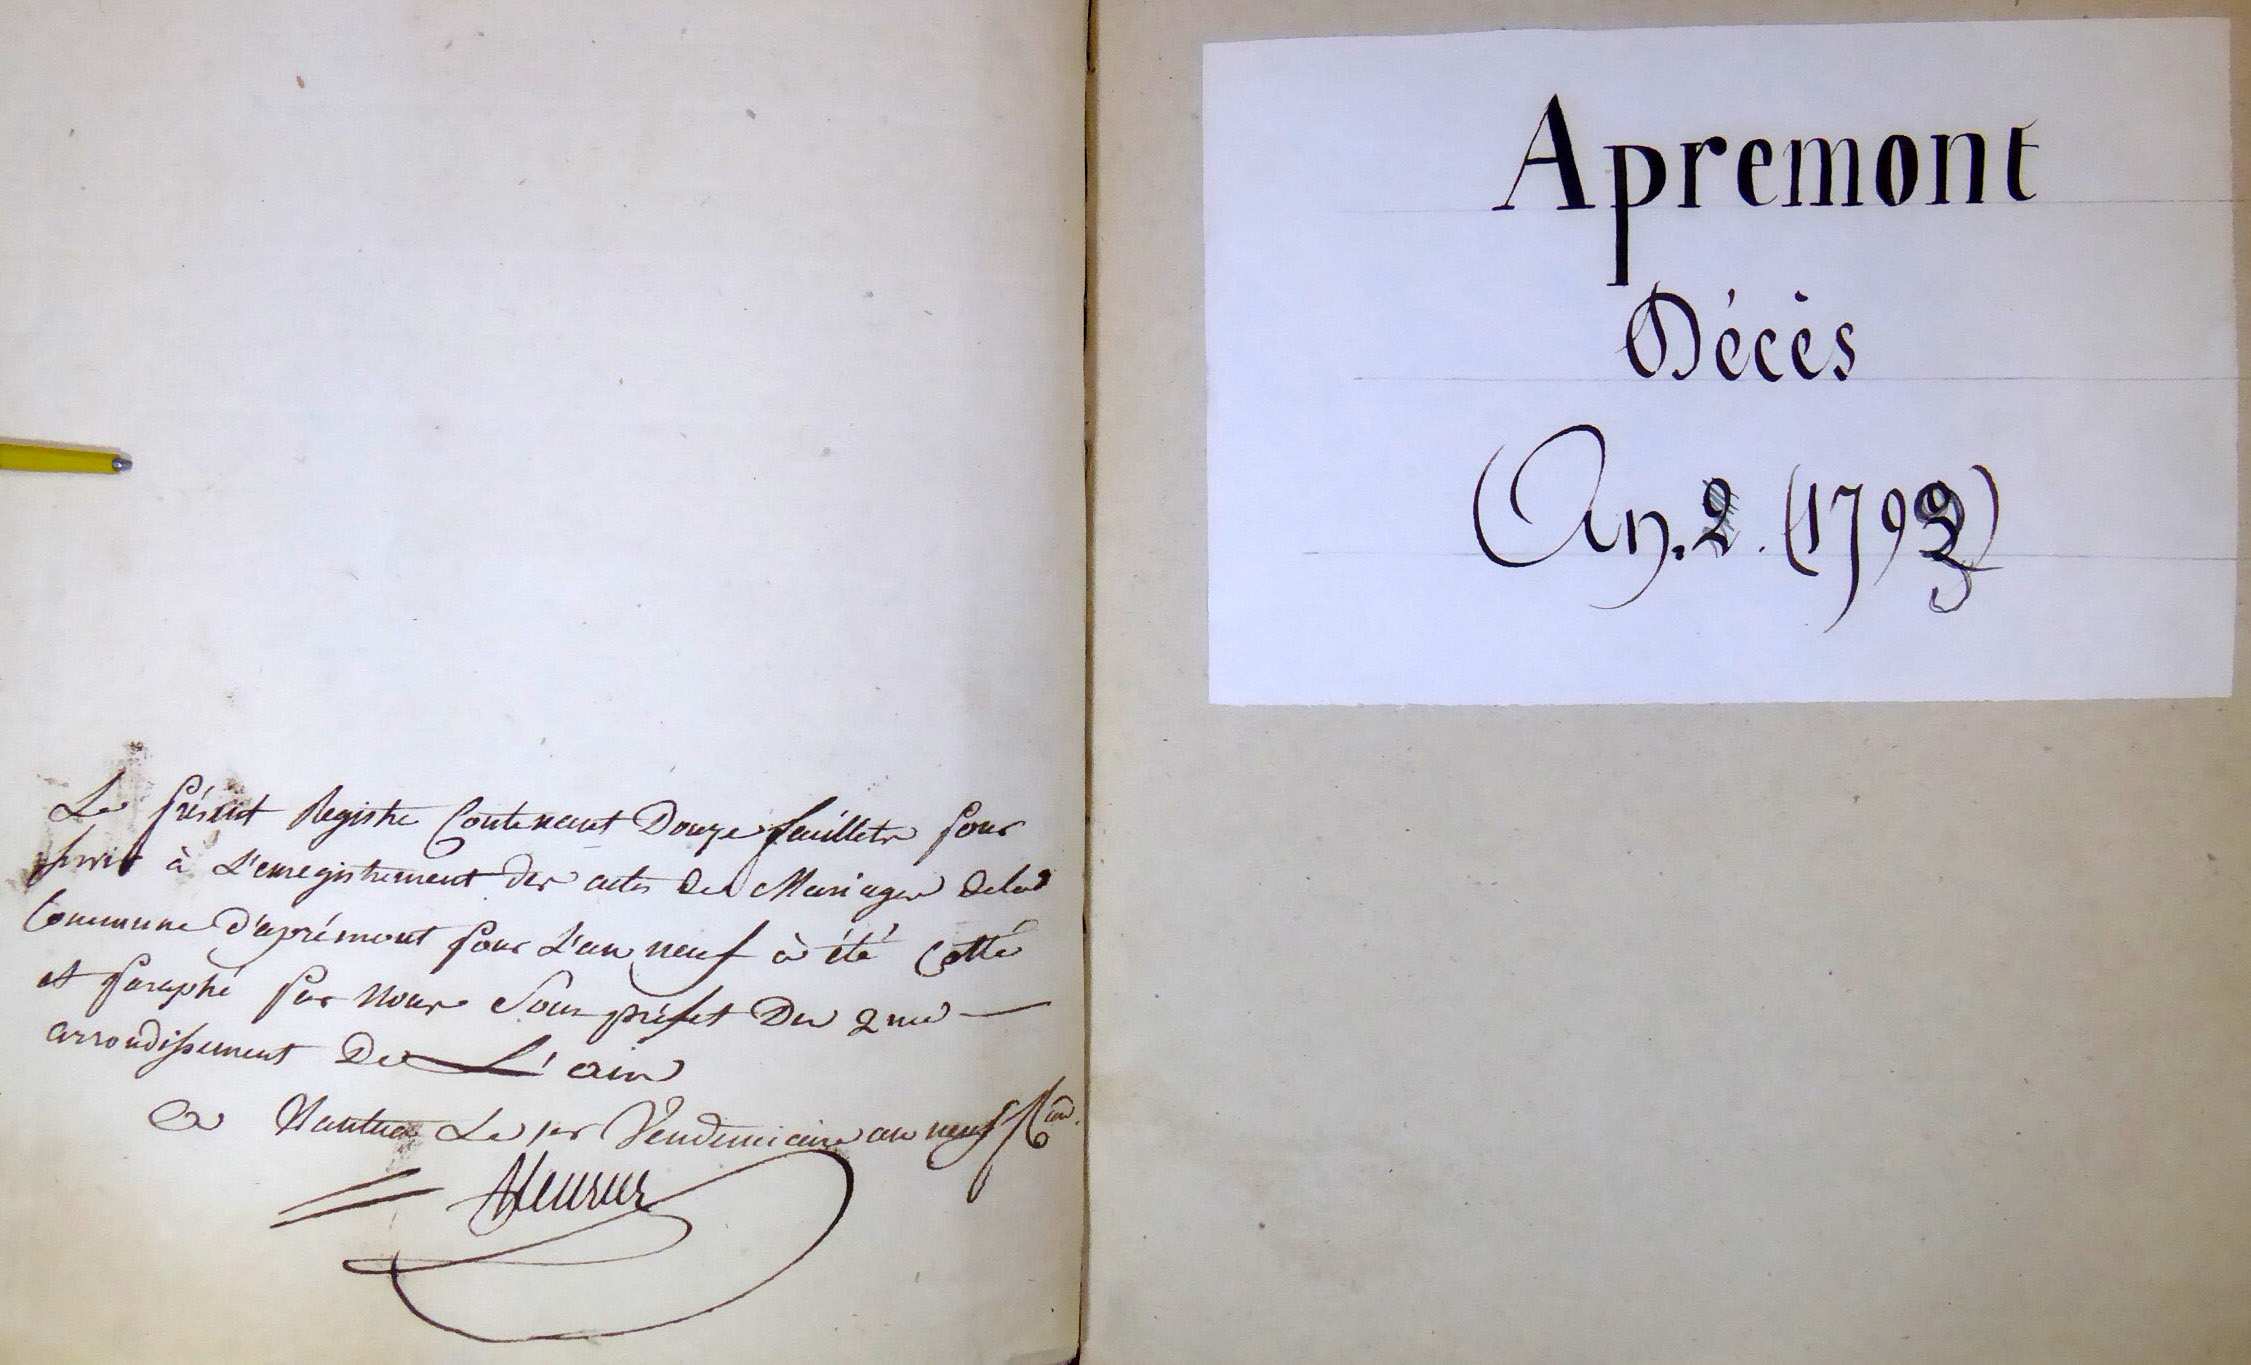 Le présent Registre Contenant Douze feuillets pour
servir à L'enregistrement des actes de Mariages de la
Commune d'aprémont pour L'an neuf à été Cotté
et paraphé par Nous Sous préfet Du 2me
arrondissement De L'ain
a Nantua Le 1er Vendemiaire an neuf
Apremont
Décès
An. 2. (1793)